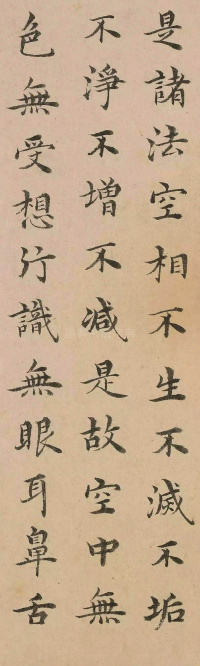 是諸法空相不生不滅不垢
不淨不增不减是故空中無
色無受想行識無眼耳鼻舌